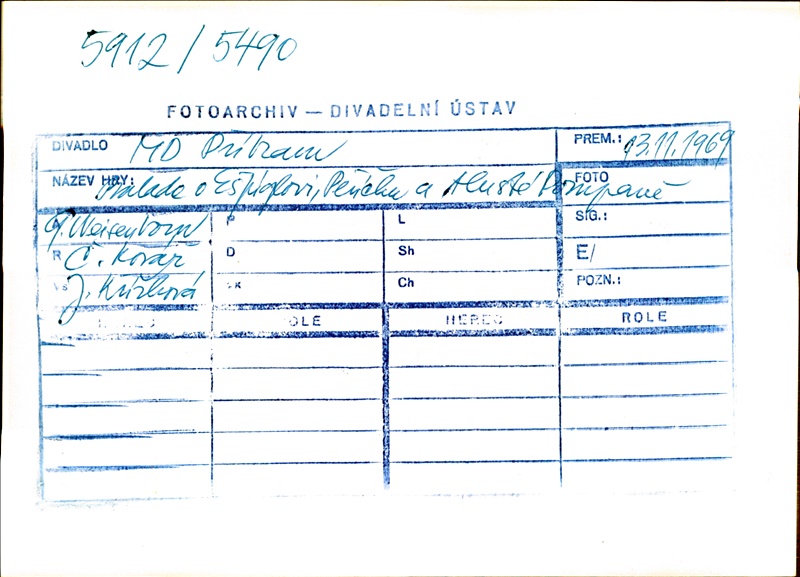 5912 / 5490
FOTOARCHIV — DIVADELNÍ ÚSTAV
DIVADLO MD Příbram PREM.: 13.11.1969
NÁZEV HRY: Balada o Ešpiglovi, a tlusté Pompaně FOTO
G. Weisenborn P L SIG.:
R Č. Kovář D Sh E/
J. Křížková Ch POZN.:
HEREC ROLE HEREC ROLE